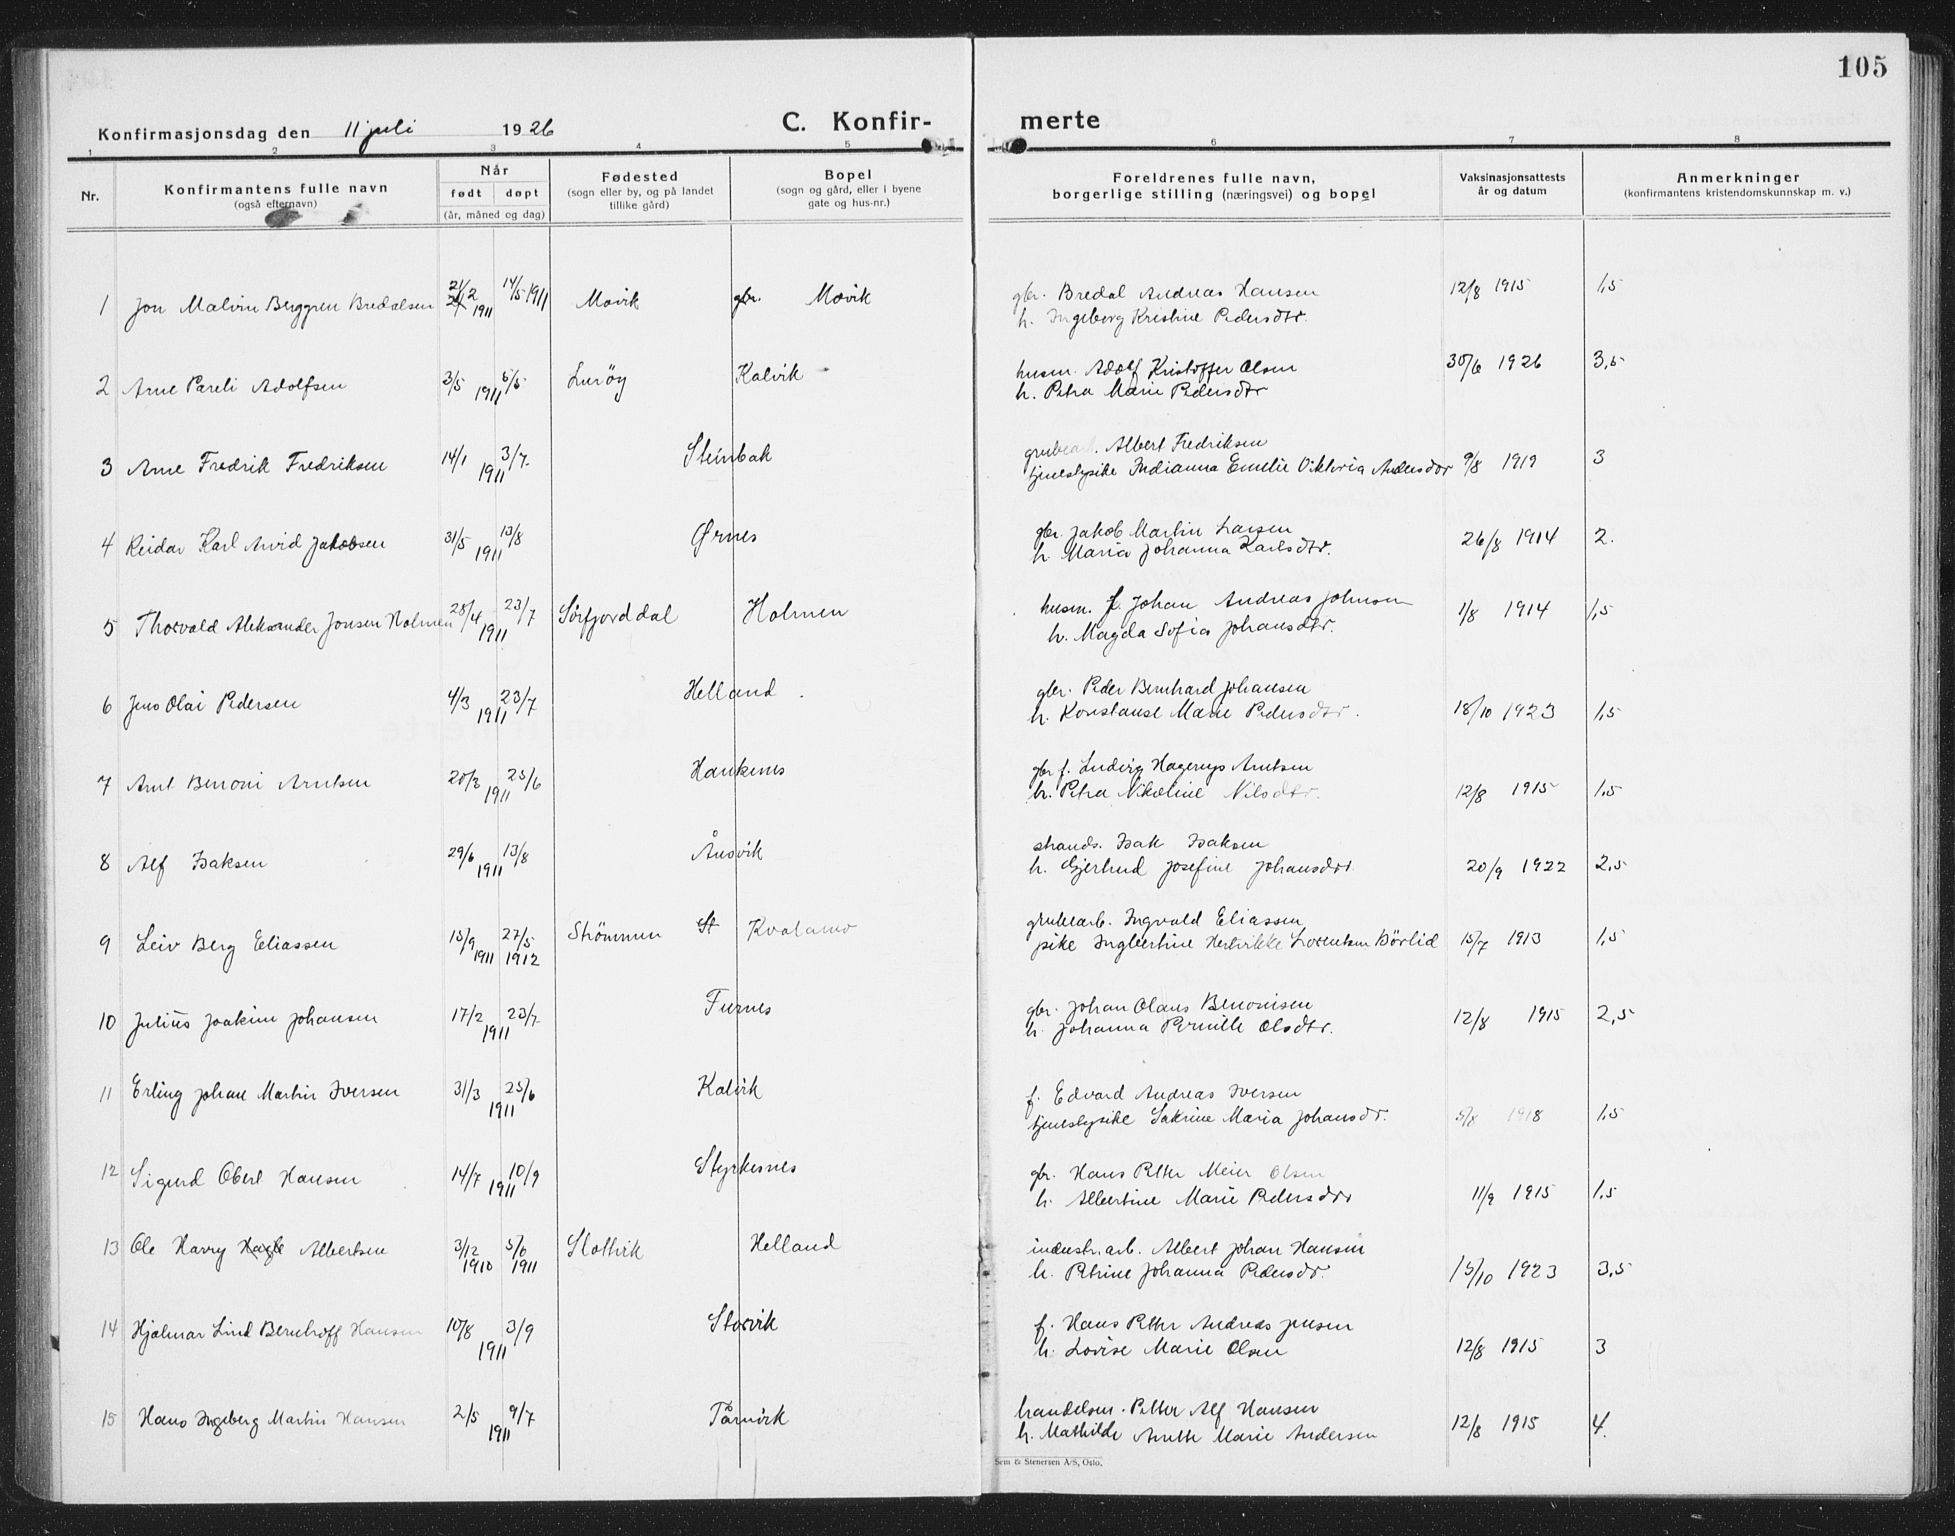 105
Konfirmasjonsdag den 11 juli 1926 C. Konfir- merte
1 2 3 4 5 6 7 8
Nr. Konfirmantens fulle navn (også efternavn) Når født døpt (år, måned og dag) Fødested (sogn eller by, og på landet tillike gård) Bopel (sogn og gård, eller i byene gate og hus-nr.) Foreldrenes fulle navn, borgerlige stilling (næringsvei) og bopel Vaksinasjonsattests år og datum Anmerkninger (konfirmantens kristendomskunnskap m. v.)
1 Jon Malvin Berggren Bredalsen 21/2 1911 14/5 1911 Movik gbr. Movik gbr. Bredal Andreas Hansen 12/8 1915 1,5
h. Ingeborg Kristine Pedersdtr.
2 Arne Pareli Adolfsen 3/5 1911 5/5 Lurøy Kalvik husm. Adolf Kristoffer Olsen 30/6 1926 3,5
h. Petra Marie Pedersdtr
3 Arne Fredrik Fredriksen 14/1 1911 3/7 Steinbak grubearb. Albert Fredriksen
tjenestepike Indianna Emelie Viktoria Andersdtr 9/8 1919 3
4 Reidar Karl Arvid Jakobsen 31/5 1911 13/8 Ørnes gbr. Jakob Martin Larsen 26/8 1914 2.
h. Maria Johanna Karlsdtr.
5 Thorvald Aleksander Jonsen Holmen 28/4 1911 23/7 Sörfjorddal Holmen husm. f. Johan Andreas Johnsen 1/8 1914 1,5
h. Magda Sofia Johansdtr.
6 Jens Olai Pedersen 4/3 1911 23/7 Helland. gbr. Peder Bernhard Johansen
h. Konstanse Marie Pedersdtr. 18/10 1923 1,5
7 Arnt Benoni Arntsen 20/3 1911 25/6 Haukenes gbr f. Ludvig Hagerup Arntsen
h. Petra Nikoline Nilsdtr. 12/8 1915 1,5
8 Alf Isaksen 29/6 1911 13/8 Ånsvik strands. Isak Isaksen
h. Gjertrud Josefine Johansdtr. 20/9 1922 2,5
9 Leiv Berg Eliassen 15/9 1911 27/5 1912 Strömmen St Kvalamo grubearb. Ingvald Eliassen
pike Ingbertine Hertvikke Lorentsen Børlid 15/7 1913 1,5
10 Julius Joakim Johansen 17/2 1911 23/7 Furnes gbr. Johan Olaus Benonisen
h. Johanna Pernille Olsdtr. 12/8 1915 2,5
11 Erling Johan Martin Iversen 31/3 1911 25/6 Kalvik f. Edvard Andreas Iversen
tjenestepike Sakrine Maria Johansdr. 5/8 1918 1,5
12 Sigurd Obert Hansen 14/7 1911 10/9 Styrkesnes gbr. Hans Petter Meier Olsen
h. Albertine Marie Pedersdtr 11/9 1915 1.5
13 Ole Harry Hagb Albertsen 3/12 1910 5/6 1911 Slotvik Helland industr.arb. Albert Johan Hansen
h. Petrine Johanna Pedersdr. 15/10 1923 3,5
14 Hjalmar Lind Bernhoff Hansen 10/8 1911 3/9 Storvik f. Hans Petter Andreas Jensen
h. Lovise Marie Olsen 12/8 1915 3
15 Hans Ingeberg Martin Hansen 2/5 1911 9/7 Tårnvik handelsm. Petter Alf Hansen 12/8 1915 4.
h. Mathilde Anette Marie Andersen
Sem & Stenersen A/S, Oslo.